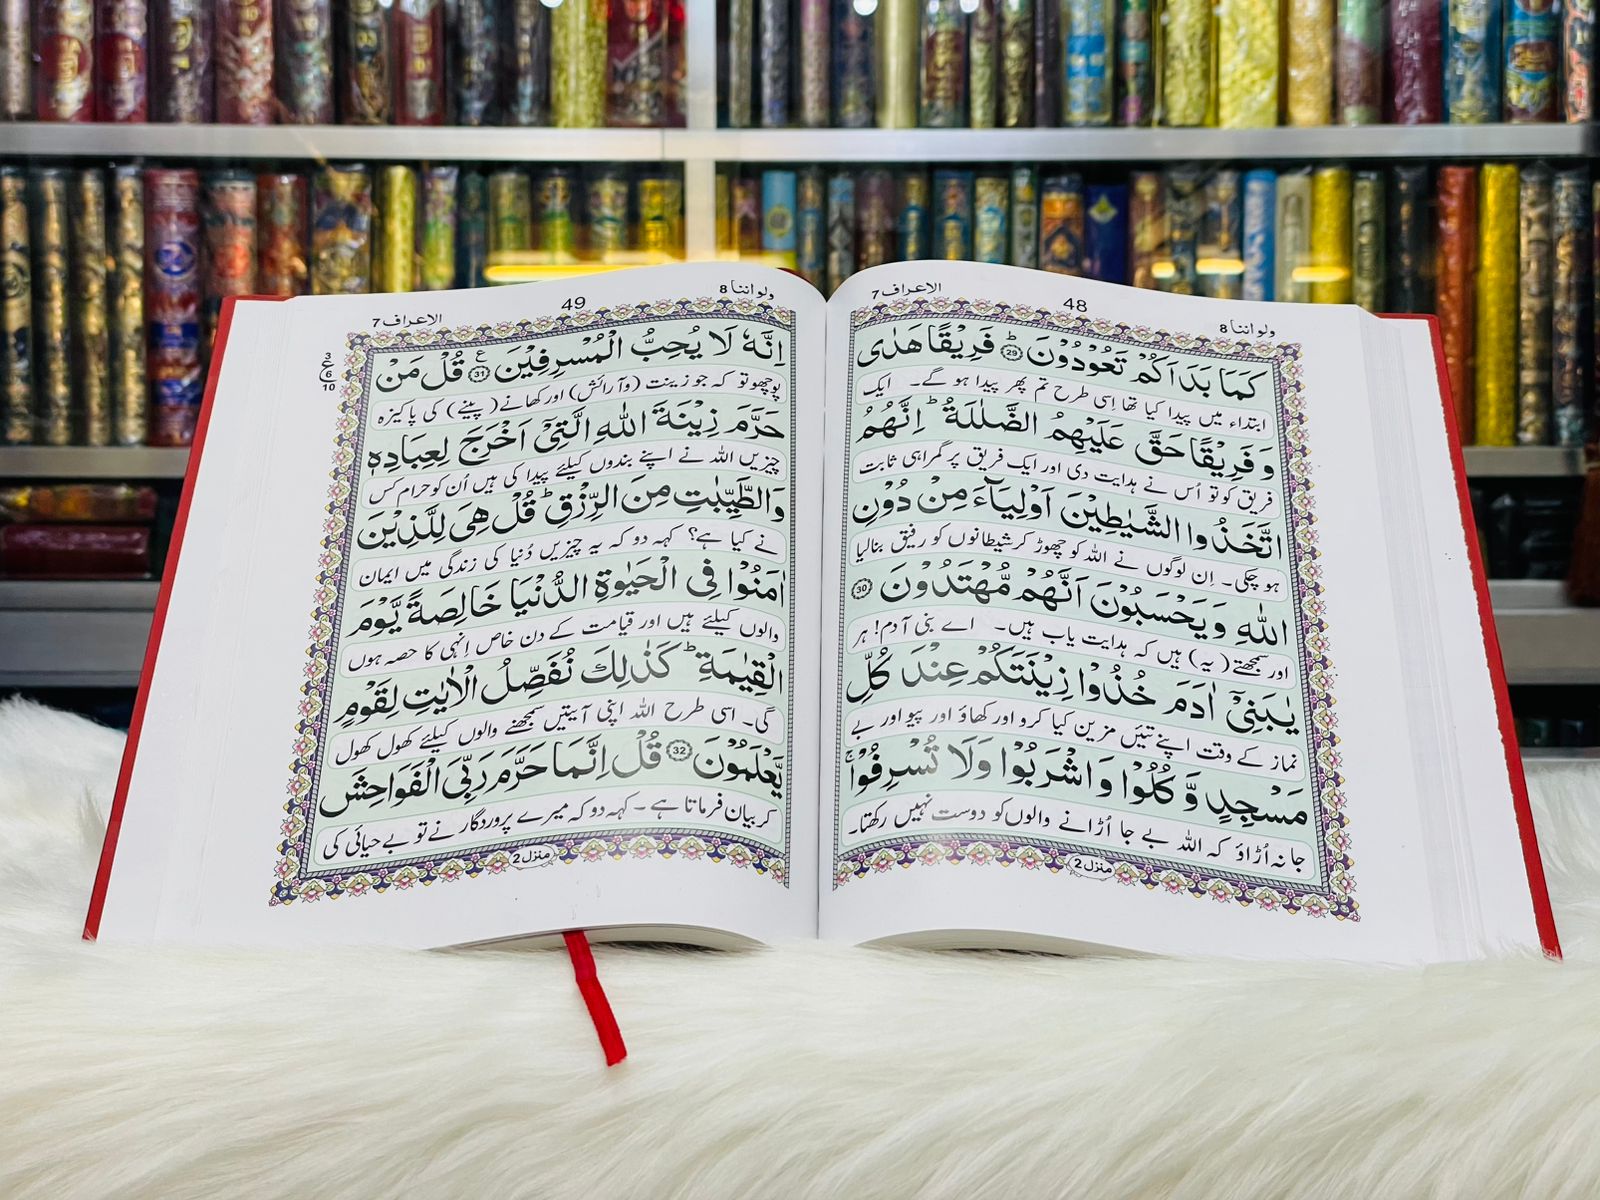 الاعراف 7
48
ولو اننا 8
كَمَا بَدَاَكُمْ تَعُوْدُوْنَ ؕ 29 فَرِيْقًا هَدٰى
ابتداء میں پیدا کیا تھا اِسی طرح تم پھر پیدا ہو گے۔ ایک
وَ فَرِيْقًا حَقَّ عَلَيْهِمُ الضَّلٰلَةُ ؕ اِنَّهُمُ
فریق کو تو اُس نے ہدایت دی اور ایک فریق پر گمراہی ثابت
اتَّخَذُوا الشَّيٰطِيْنَ اَوْلِيَآءَ مِنْ دُوْنِ
ہو چکی۔ اِن لوگوں نے اللہ کو چھوڑ کر شیطانوں کو رفیق بنالیا
اللّٰهِ وَ يَحْسَبُوْنَ اَنَّهُمْ مُّهْتَدُوْنَ 30
اور سمجھتے (یہ) ہیں کہ ہدایت یاب ہیں۔ اے بنی آدم! ہر
يٰبَنِيْۤ اٰدَمَ خُذُوْا زِيْنَتَكُمْ عِنْدَ كُلِّ
نماز کے وقت اپنے تئیں مزین کیا کرو اور کھاؤ اور پیو اور بے
مَسْجِدٍ وَّ كُلُوْا وَ اشْرَبُوْا وَ لَا تُسْرِفُوْا ۚ
جا نہ اُڑاؤ کہ اللہ بے جا اُڑانے والوں کو دوست نہیں رکھتا۔
منزل 2
ولو اننا 8
49
الاعراف 7
اِنَّهٗ لَا يُحِبُّ الْمُسْرِفِيْنَ 31 ع قُلْ مَنْ
3
ع 6
10
پوچھو تو کہ جو زینت (و آرائش) اور کھانے (پینے) کی پاکیزہ
حَرَّمَ زِيْنَةَ اللّٰهِ الَّتِيْۤ اَخْرَجَ لِعِبَادِهٖ
چیزیں اللہ نے اپنے بندوں کیلئے پیدا کی ہیں اُن کو حرام کس
وَالطَّيِّبٰتِ مِنَ الرِّزْقِ ؕ قُلْ هِيَ لِلَّذِيْنَ
نے کیا ہے؟ کہہ دو کہ یہ چیزیں دُنیا کی زندگی میں ایمان
اٰمَنُوْا فِي الْحَيٰوةِ الدُّنْيَا خَالِصَةً يَّوْمَ
والوں کیلئے ہیں اور قیامت کے دن خاص اِنہی کا حصہ ہوں
الْقِيٰمَةِ ؕ كَذٰلِكَ نُفَصِّلُ الْاٰيٰتِ لِقَوْمٍ
گی۔ اسی طرح اللہ اپنی آیتیں سمجھنے والوں کیلئے کھول کھول
يَّعْلَمُوْنَ 32 قُلْ اِنَّمَا حَرَّمَ رَبِّيَ الْفَوَاحِشَ
کر بیان فرماتا ہے۔ کہہ دو کہ میرے پروردگار نے تو بے حیائی کی
منزل 2